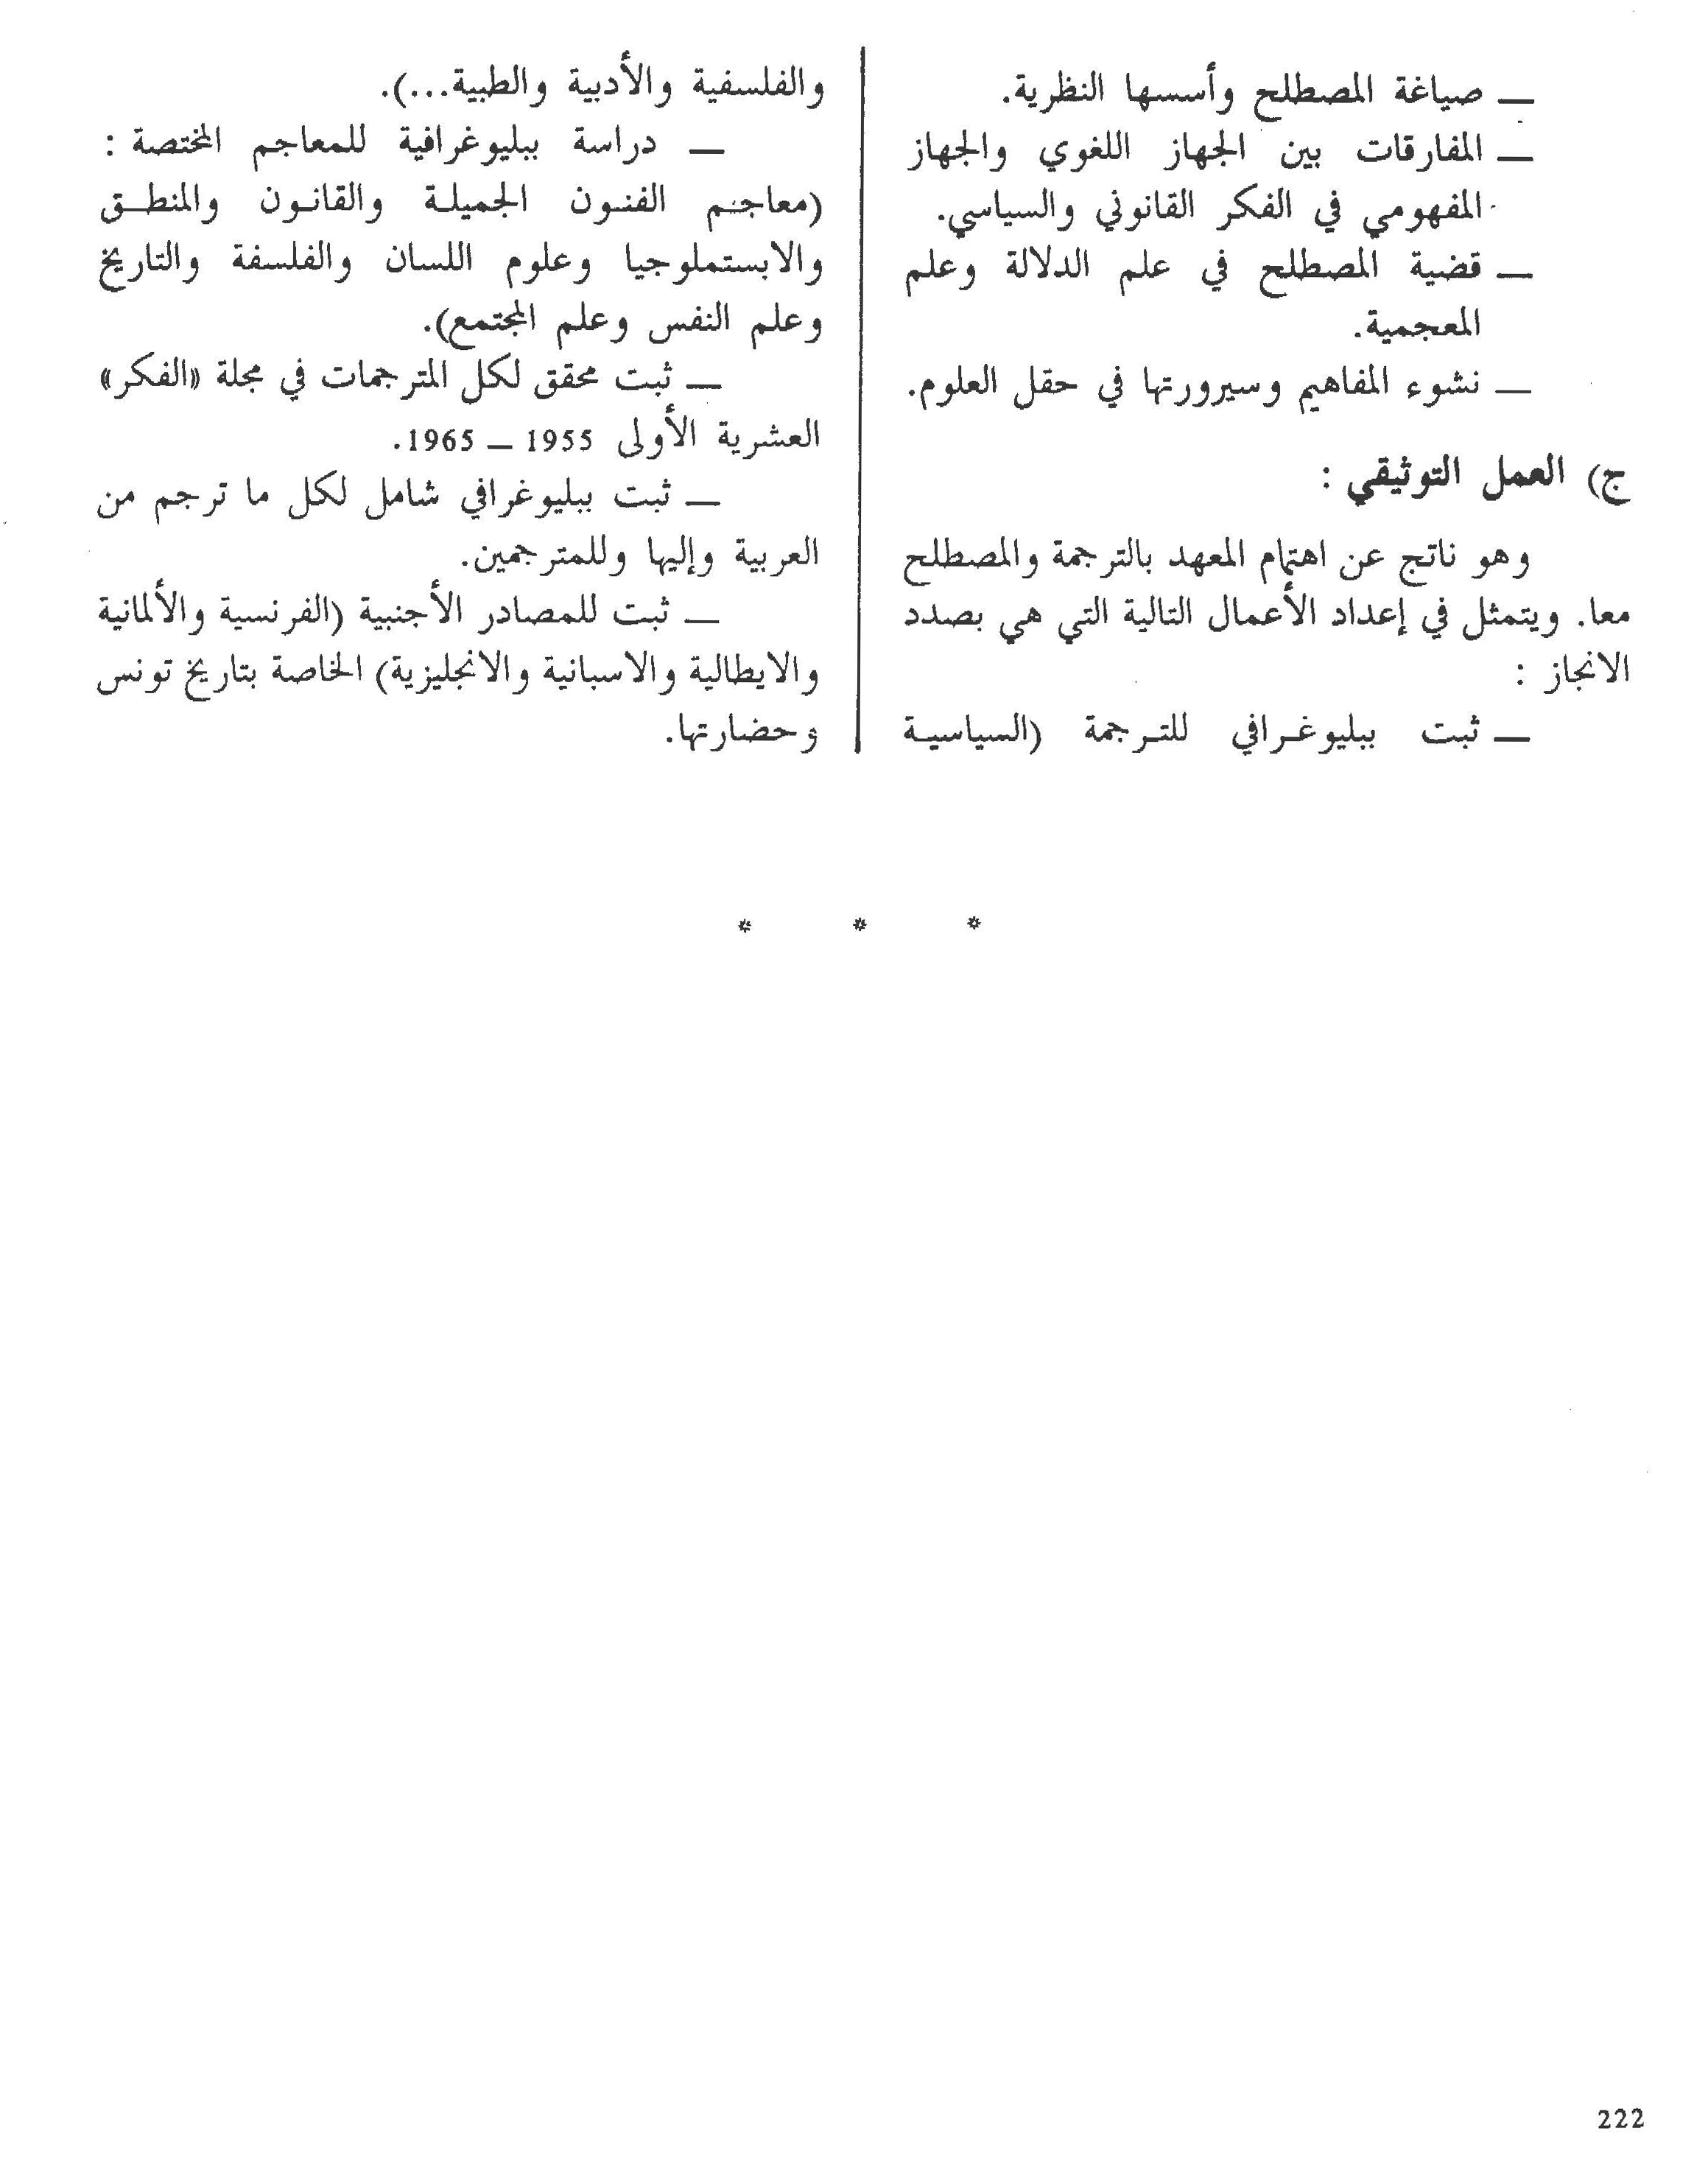 ــ صياغة المصطلح وأسسها النظرية.
ــ المفارقات بين الجهاز اللغوي والجهاز
المفهومي في الفكر القانوني والسياسي.
ــ قضية المصطلح في علم الدلالة وعلم
المعجمية.
ــ نشوء المفاهيم وسيرورتها في حقل العلوم.
ج) العمل التوثيقي :
وهو ناتج عن اهتمام المعهد بالترجمة والمصطلح
معا. ويتمثل في إعداد الأعمال التالية التي هي بصدد
الانجاز :
ــ ثبت ببليوغرافي للترجمة (السياسية
والفلسفية والأدبية والطبية...).
ــ دراسة ببليوغرافية للمعاجم المختصة :
(معاجم الفنون الجميلة والقانون والمنطق
والابستملوجيا وعلوم اللسان والفلسفة والتاريخ
وعلم النفس وعلم المجتمع).
ــ ثبت محقق لكل المترجمات في مجلة «الفكر»
العشرية الأولى 1955 ــ 1965.
ــ ثبت ببليوغرافي شامل لكل ما ترجم من
العربية وإليها وللمترجمين.
ــ ثبت للمصادر الأجنبية (الفرنسية والألمانية
والايطالية والاسبانية والانجليزية) الخاصة بتاريخ تونس
وحضارتها.
* * *
222